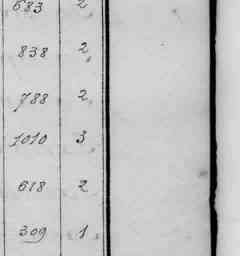 683 2
838 2
788 2
1010 3
618 2
309 1